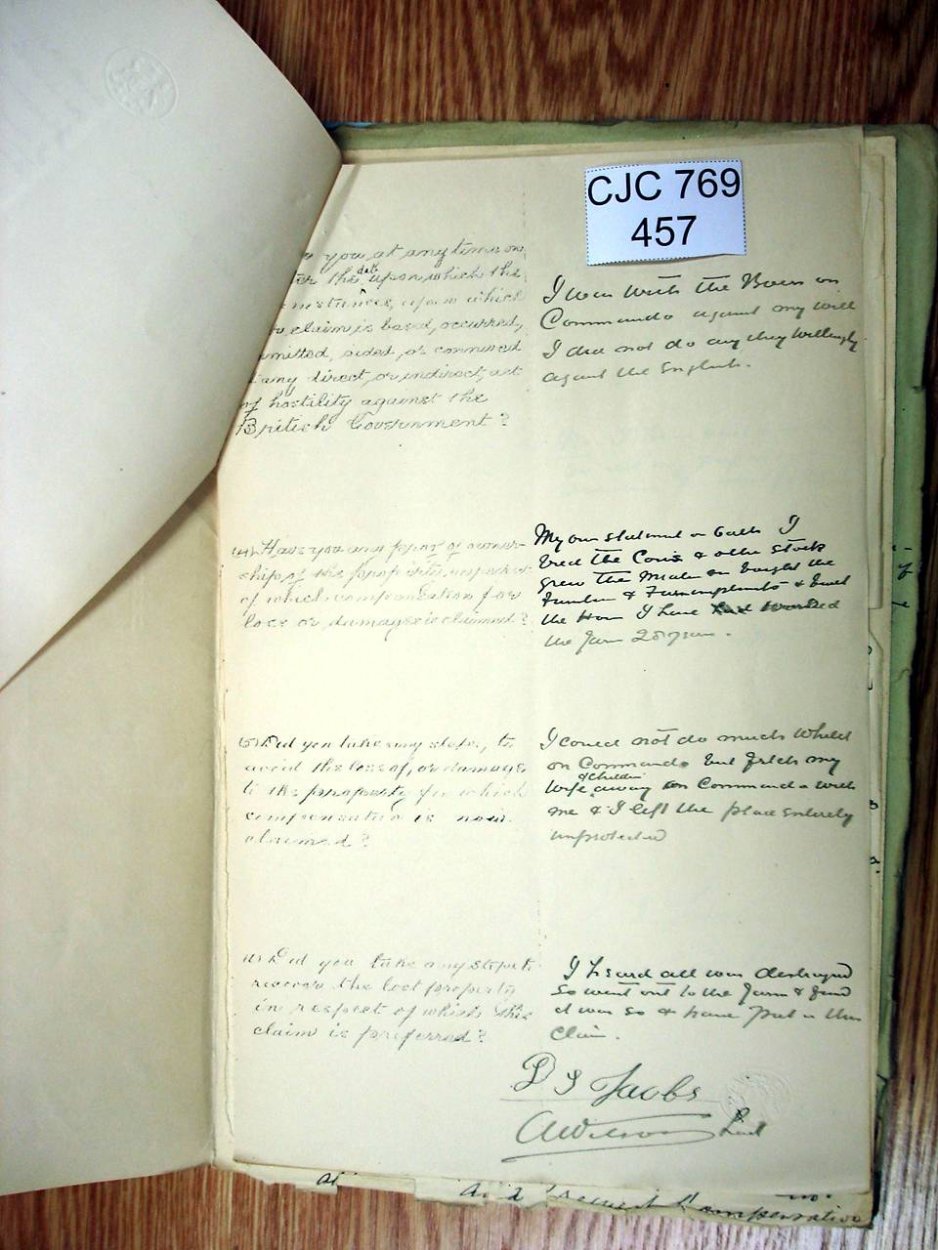 CJC 769
457
you, at any time on
the date upon which the
upon which
claim is based, occurred,
aided, or connived
any direct, or indirect, act
of hostility against the
British Government?
I was with the Boers on
Commando against my will
I did not do any thing willingly
against the English.
(4) Have you any proof of owner-
ship of the properties, in respect
of which compensation for
loss or damage is claimed?
My own statement on oath I
bred the Cows & other stock
grew the Mealies bought the
Furniture & Farm implements & built
the House I have worked
the Farm 28 years.
(5) Did you take any steps, to
avoid the loss of, or damage
to the property for which
compensation is now
claimed?
I could not do much whilst
on Commando but fetch my
wife & children away on Commando with
me & I left the place entirely
unprotected
Did you take any steps to
recover the lost property
in respect of which this
claim is preferred?
I heard all was destroyed
so went out to the Farm & found
it was so & have put in this
Claim.
D J Jacobs
A Wilson Lieut
and present Compensation